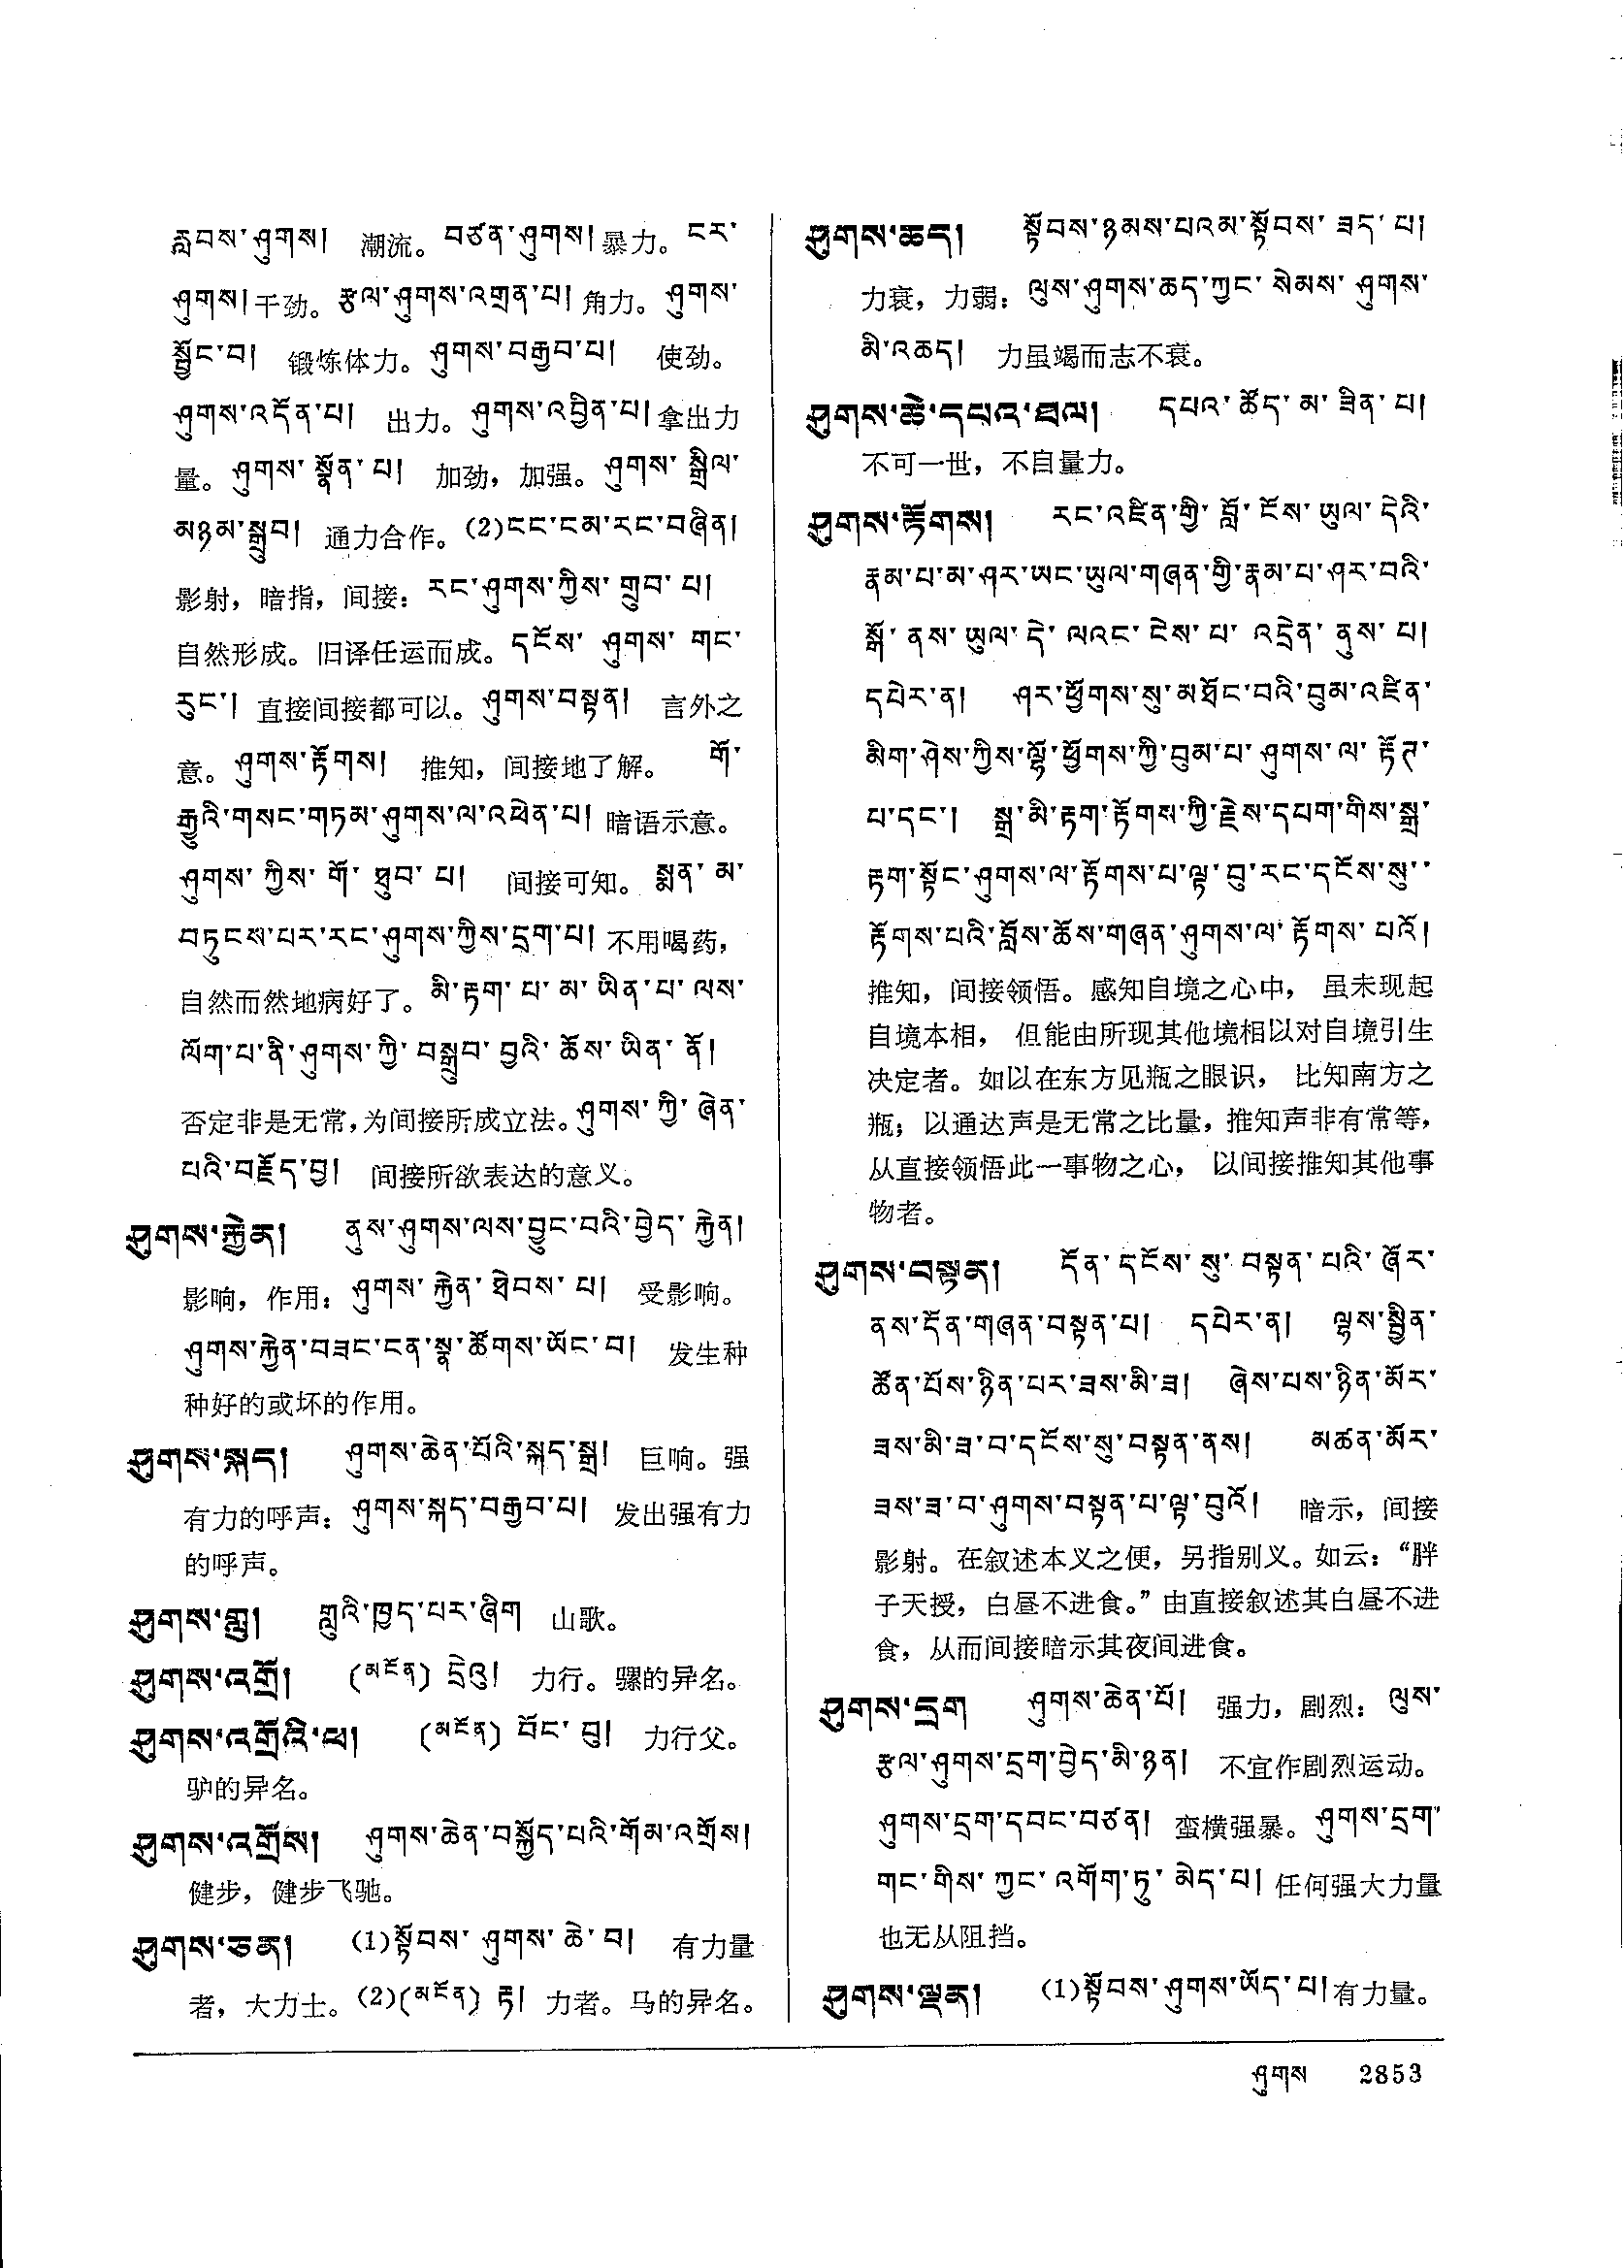 རླབས་ཤུགས། 潮流。བཙན་ཤུགས། 暴力。ངར་
ཤུགས། 干劲。རྩལ་ཤུགས་འགྲན་པ། 角力。ཤུགས་
སྦྱོང་བ། 锻炼体力。ཤུགས་བརྒྱབ་པ། 使劲。
ཤུགས་འདོན་པ། 出力。ཤུགས་འབྱིན་པ། 拿出力
量。ཤུགས་སྣོན་པ། 加劲，加强。ཤུགས་སྒྲིལ་
མཉམ་སྒྲུབ། 通力合作。(2)ངང་ངམ་རང་བཞིན།
影射，暗指，间接：རང་ཤུགས་ཀྱིས་གྲུབ་པ།
自然形成。旧译任运而成。དངོས་ཤུགས་གང་
རུང་། 直接间接都可以。ཤུགས་བསྟན། 言外之
意。ཤུགས་རྟོགས། 推知，间接地了解。 གོ་
རྒྱུའི་གསང་གཏམ་ཤུགས་ལ་འཕེན་པ། 暗语示意。
ཤུགས་ཀྱིས་གོ་ཐུབ་པ། 间接可知。སྨན་མ་
བཏུངས་པར་རང་ཤུགས་ཀྱིས་དྲག་པ། 不用喝药，
自然而然地病好了。མི་རྟག་པ་མ་ཡིན་པ་ལས་
ལོག་པ་ནི་ཤུགས་ཀྱི་བསྒྲུབ་བྱའི་ཆོས་ཡིན་ནོ།
否定非是无常，为间接所成立法。ཤུགས་ཀྱི་ཞེན་
པའི་བརྗོད་བྱ། 间接所欲表达的意义。
ཤུགས་རྐྱེན། ནུས་ཤུགས་ལས་བྱུང་བའི་བྱེད་རྐྱེན།
影响，作用：ཤུགས་རྐྱེན་ཐེབས་པ། 受影响。
ཤུགས་རྐྱེན་བཟང་ངན་སྣ་ཚོགས་ཡོང་བ། 发生种
种好的或坏的作用。
ཤུགས་སྐད། ཤུགས་ཆེན་པོའི་སྐད་སྒྲ། 巨响。强
有力的呼声：ཤུགས་སྐད་བརྒྱབ་པ། 发出强有力
的呼声。
ཤུགས་གླུ། གླུའི་ཁྱད་པར་ཞིག 山歌。
ཤུགས་འགྲོ། (མངོན) དྲེའུ། 力行。骡的异名。
ཤུགས་འགྲོའི་ཕ། (མངོན) བོང་བུ། 力行父。
驴的异名。
ཤུགས་འགྲོས། ཤུགས་ཆེན་བསྐྱོད་པའི་གོམ་འགྲོས།
健步，健步飞驰。
ཤུགས་ཅན། (1)སྟོབས་ཤུགས་ཆེ་བ། 有力量
者，大力士。(2)(མངོན) རྟ། 力者。马的异名。
ཤུགས་ཆད། སྟོབས་ཉམས་པའམ་སྟོབས་ཟད་པ།
力衰，力弱：ལུས་ཤུགས་ཆད་ཀྱང་སེམས་ཤུགས་
མི་འཆད། 力虽竭而志不衰。
ཤུགས་ཆེ་དཔའ་ཐལ། དཔའ་ཚོད་མ་ཟིན་པ།
不可一世，不自量力。
ཤུགས་རྟོགས། རང་འཛིན་གྱི་བློ་ངོས་ཡུལ་དེའི་
རྣམ་པ་མ་ཤར་ཡང་ཡུལ་གཞན་གྱི་རྣམ་པ་ཤར་བའི་
སྒོ་ནས་ཡུལ་དེ་ལའང་ངེས་པ་འདྲེན་ནུས་པ།
དཔེར་ན། ཤར་ཕྱོགས་སུ་མཐོང་བའི་བུམ་འཛིན་
མིག་ཤེས་ཀྱིས་ལྷོ་ཕྱོགས་ཀྱི་བུམ་པ་ཤུགས་ལ་རྟོད་
པ་དང་། སྒྲ་མི་རྟག་རྟོགས་ཀྱི་རྗེས་དཔག་གིས་སྒྲ་
རྟག་སྟོང་ཤུགས་ལ་རྟོགས་པ་ལྟ་བུ་རང་དངོས་སུ་
རྟོགས་པའི་བློས་ཆོས་གཞན་ཤུགས་ལ་རྟོགས་པའོ།
推知，间接领悟。感知自境之心中，虽未现起
自境本相，但能由所现其他境相以对自境引生
决定者。如以在东方见瓶之眼识，比知南方之
瓶；以通达声是无常之比量，推知声非有常等，
从直接领悟此一事物之心，以间接推知其他事
物者。
ཤུགས་བསྟན། དོན་དངོས་སུ་བསྟན་པའི་ཞོར་
ནས་དོན་གཞན་བསྟན་པ། དཔེར་ན། ལྷས་སྦྱིན་
ཚོན་པོས་ཉིན་པར་ཟས་མི་ཟ། ཞེས་པས་ཉིན་མོར་
ཟས་མི་ཟ་བ་དངོས་སུ་བསྟན་ནས། མཚན་མོར་
ཟས་ཟ་བ་ཤུགས་བསྟན་པ་ལྟ་བུའོ། 暗示，间接
影射。在叙述本义之便，另指别义。如云：“胖
子天授，白昼不进食。”由直接叙述其白昼不进
食，从而间接暗示其夜间进食。
ཤུགས་དྲག ཤུགས་ཆེན་པོ། 强力，剧烈：ལུས་
རྩལ་ཤུགས་དྲག་བྱེད་མི་ཉན། 不宜作剧烈运动。
ཤུགས་དྲག་དབང་བཙན། 蛮横强暴。ཤུགས་དྲག་
གང་གིས་ཀྱང་འགོག་ཏུ་མེད་པ། 任何强大力量
也无从阻挡。
ཤུགས་ལྡན། (1)སྟོབས་ཤུགས་ཡོད་པ། 有力量。
ཤུགས 2853